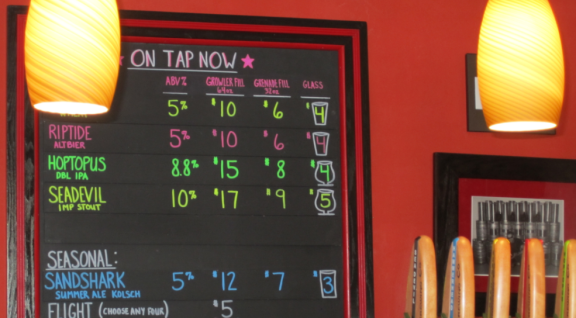 ON TAP NOW
ABV% GROWLER FILL GRENADE FILL GLASS
64oz 32oz
5% $10 $6 $4
RIPTIDE 5% $10 $6 $4
ALTBIER
HOPTOPUS 8.8% $15 $8 $4
DBL IPA
SEADEVIL 10% $17 $9 $5
IMP STOUT
SEASONAL:
SANDSHARK 5% $12 $7 $3
SUMMER ALE KOLSCH
FLIGHT (CHOOSE ANY FOUR) $5